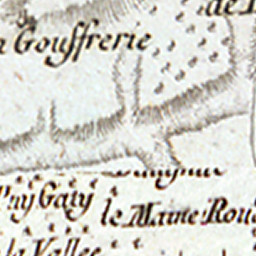 de
a Gouffrerie
Puy Gaty
le Maine Rou
la Vallee